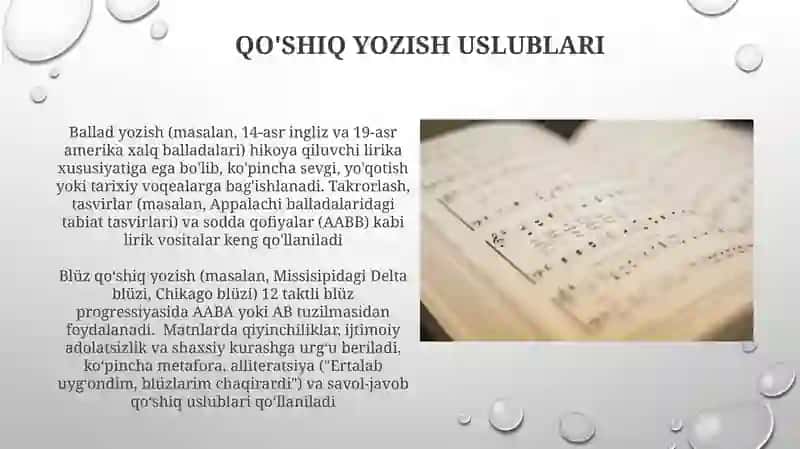 QO'SHIQ YOZISH USLUBLARI
Ballad yozish (masalan, 14-asr ingliz va 19-asr
amerika xalq balladalari) hikoya qiluvchi lirika
xususiyatiga ega bo'lib, ko'pincha sevgi, yo'qotish
yoki tarixiy voqealarga bag'ishlanadi. Takrorlash,
tasvirlar (masalan, Appalachi balladalaridagi
tabiat tasvirlari) va sodda qofiyalar (AABB) kabi
lirik vositalar keng qo'llaniladi
Blüz qoʻshiq yozish (masalan, Missisipidagi Delta
blüzi, Chikago blüzi) 12 taktli blüz
progressiyasida AABA yoki AB tuzilmasidan
foydalanadi. Matnlarda qiyinchiliklar, ijtimoiy
adolatsizlik va shaxsiy kurashga urgʻu beriladi,
koʻpincha metafora, alliteratsiya ("Ertalab
uygʻondim, blüzlarim chaqirardi") va savol-javob
qoʻshiq uslublari qoʻllaniladi